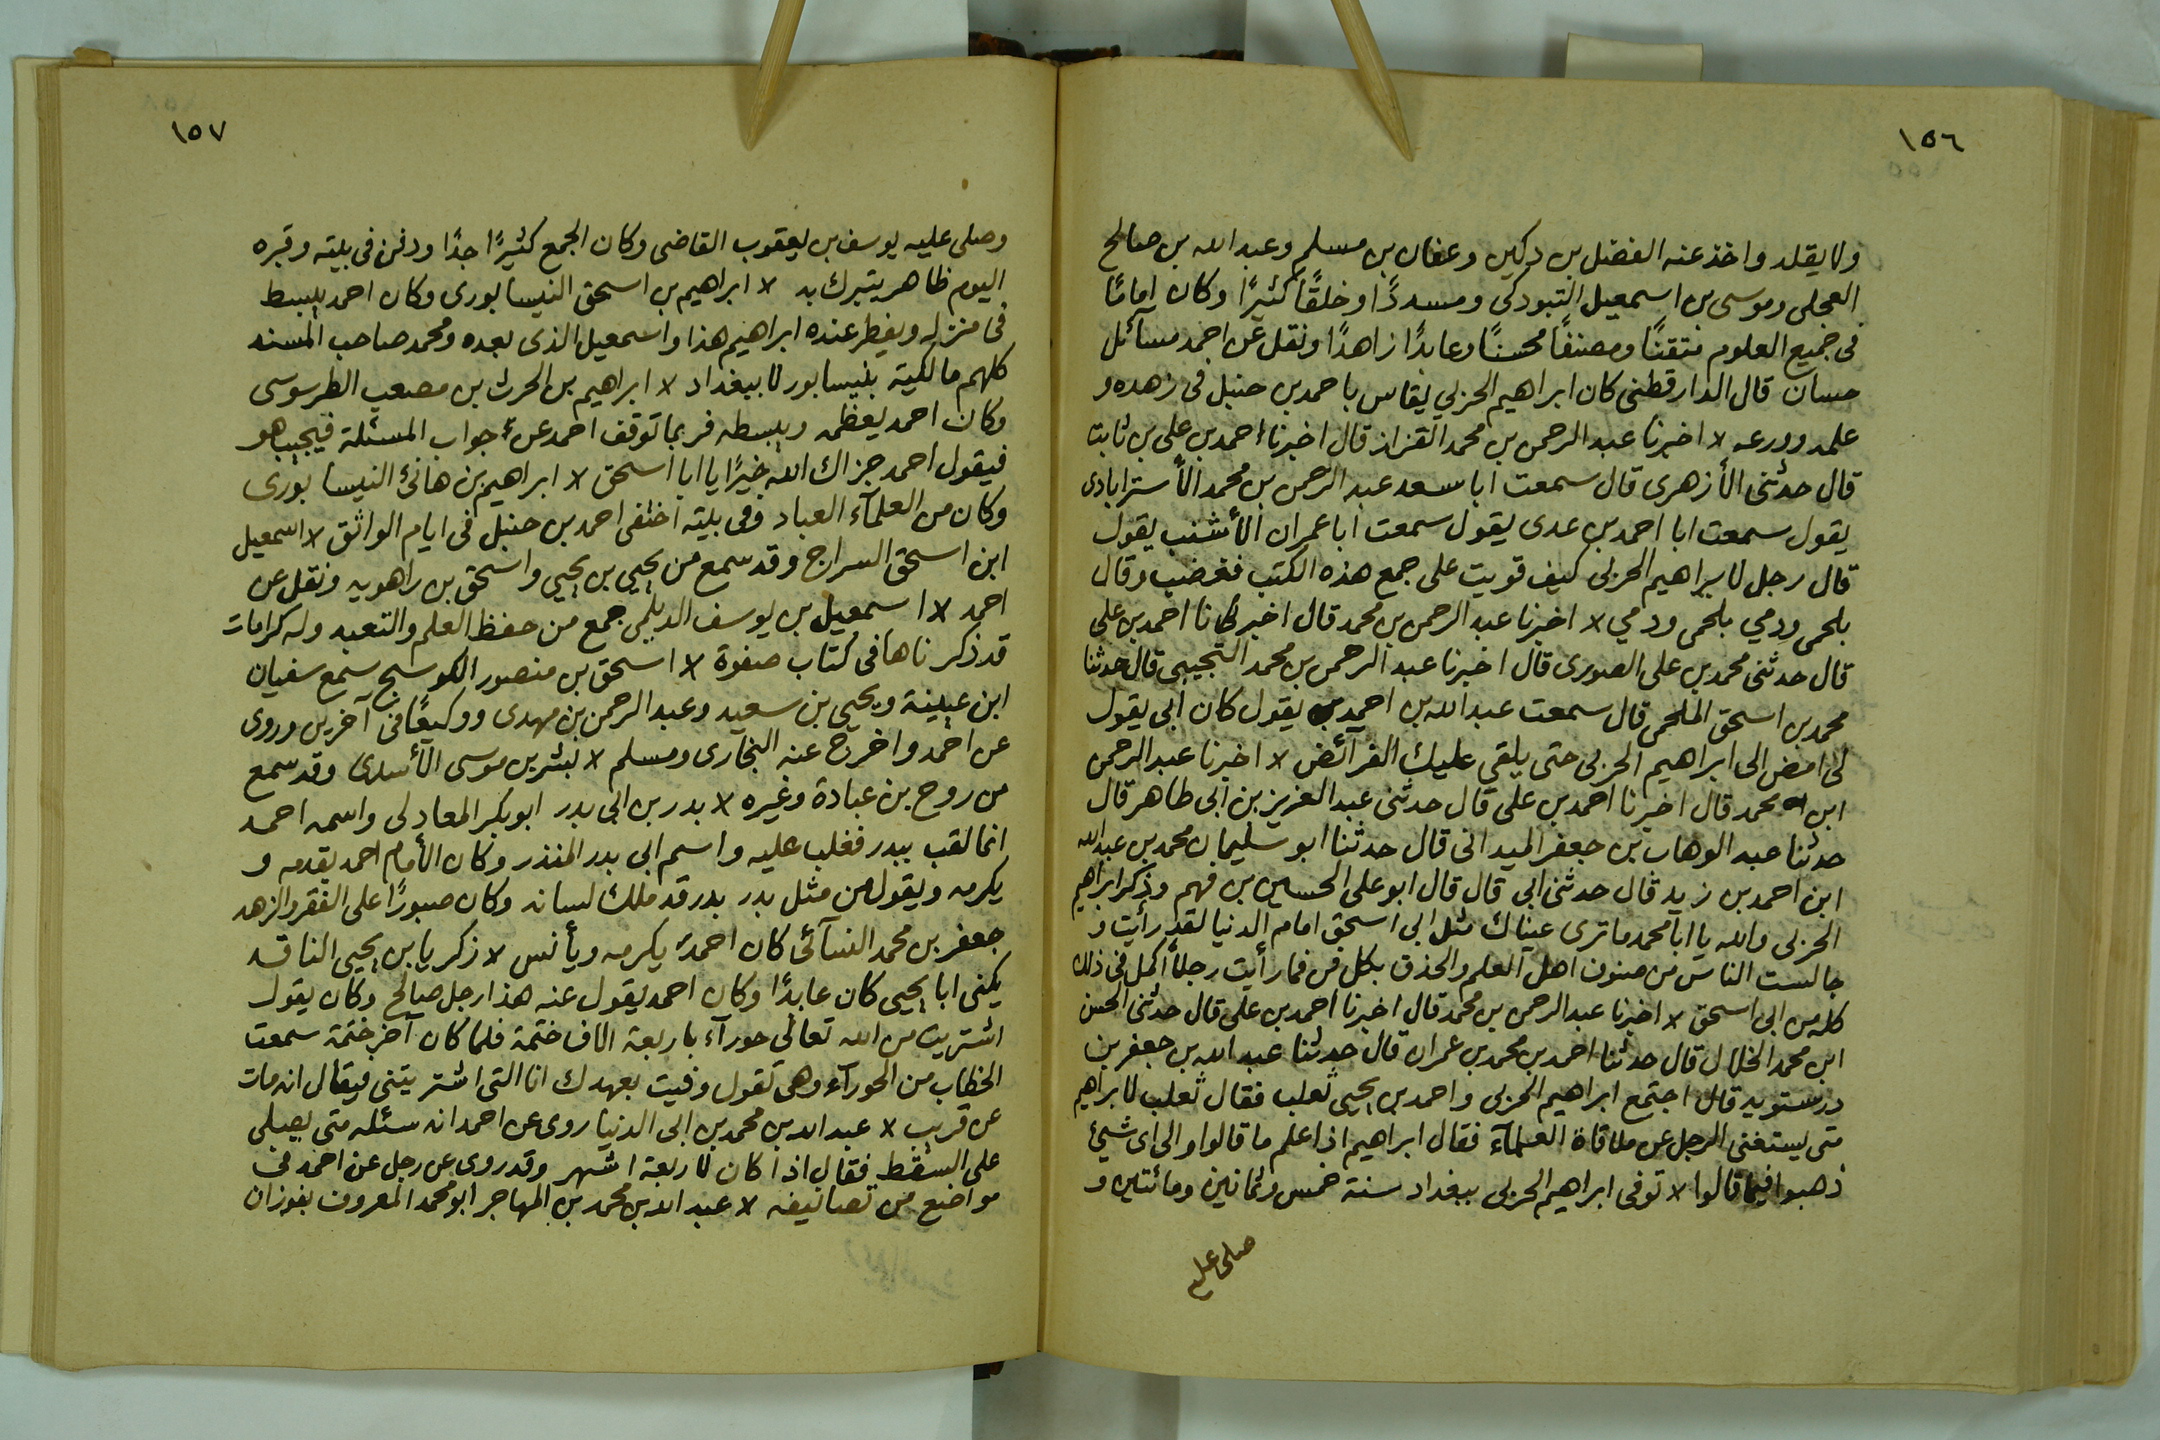 ١٥٦
ولا يقلد واخذ عنه الفضل بن دكين وعفان بن مسلم وعبد الله بن صالح
العجلى وموسى بن اسمعيل التبودكى ومسددًا وخلقًا كثيرًا وكان امامًا
فى جميع العلوم متقنًا ومصنفًا محسنًا وعابدًا زاهدًا ونقل عن احمد مسآئل
حسان قال الدارقطنى كان ابراهيم الحربي يقاس باحمد بن حنبل فى زهده و
علمه وورعه لا اخبرنا عبد الرحمن بن محمد القزاز قال اخبرنا احمد بن على بن ثابت
قال حدثنى الأزهرى قال سمعت ابا سعد عبد الرحمن بن محمد الأسترابادى
يقول سمعت ابا احمد بن عدى يقول سمعت ابا عمران الأشنب يقول
قال رجل لابراهيم الحربى كيف قويت على جمع هذه الكتب فغضب وقال
بلحمى ودمي بلحمى ودمي لا اخبرنا عبد الرحمن بن محمد قال اخبركانا احمد بن على
قال حدثنى محمد بن على الصورى قال اخبرنا عبد الرحمن بن محمد التجيبى قال حدثنا
محمد بن اسحق الملحمى قال سمعت عبد الله بن احمد يقول كان ابى يقول
لى امض الى ابراهيم الحربى حتى يلقى عليك الفرآئض لا اخبرنا عبد الرحمن
ابن محمد قال اخبرنا احمد بن على قال حدثنى عبد العزيز بن ابى طاهر قال
حدثنا عبد الوهاب بن جعفر الميدانى قال حدثنا ابو سليمان محمد بن عبد الله
ابن احمد بن زيد قال حدثنى ابي قال قال ابو على الحسين بن فهم وذكر ابراهيم
الحربى والله يا ابا محمد ما ترى عيناك مثل ابى اسحق امام الدنيا لقد رأيت و
جالست الناس من صنوف اهل العلم والحذق بكل فن فما رأيت رجلاً اكمل فى ذلك
كله من ابى اسحق لا اخبرنا عبد الرحمن بن محمد قال اخبرنا احمد بن على قال حدثنى الحسن
ابن محمد الخلال قال حدثنا احمد بن محمد بن عمران قال حدثنا عبد الله بن جعفر بن
درستويه قال اجتمع ابراهيم الحربى واحمد بن يحيى ثعلب فقال ثعلب لابراهيم
متى يستغنى الرجل عن ملاقاة العلمآء فقال ابراهيم اذا علم ما قالوا والى اى شيئ
ذهبوا فيما قالوا لا توفى ابراهيم الحربى ببغداد سنة خمس وثمانين ومائتين و
صلى عليه
١٥٧
وصلى عليه يوسف بن يعقوب القاضى وكان الجمع كثيرًا جدًا ودفن فى بيته وقبره
اليوم ظاهر يتبرك به لا ابراهيم بن اسحق النيسابورى وكان احمد يبسط
فى منزله ويفطر عنده ابراهيم هذا واسمعيل الذى بعده ومحمد صاحب المسند
كلهم مالكية بنيسابور لا ببغداد لا ابراهيم بن الحرث بن مصعب الطرسوسى
وكان احمد يعظمه ويبسطه فربما توقف احمد عن جواب المسئلة فيجيب هو
فيقول احمد جزاك الله خيرًا يا ابا اسحق لا ابراهيم بن هانئ النيسابورى
وكان من العلمآء العباد وفى بيته اختفى احمد بن حنبل فى ايام الواثق لا اسمعيل
ابن اسحق السراج وقد سمع من يحيى بن يحيى واسحق بن راهويه ونقل عن
احمد لا اسمعيل بن يوسف الديلمى جمع من حفظ العلم والتعبد وله كرامات
قد ذكرناها فى كتاب صفوة لا اسحق بن منصور الكوسج سمع سفيان
ابن عيينة ويحيى بن سعيد وعبد الرحمن بن مهدى ووكيعًا فى آخرين وروى
عن احمد واخرج عنه البخارى ومسلم لا بشر بن موسى الأسدى وقد سمع
من روح بن عبادة وغيره لا بدر بن ابى بدر ابو بكر المعادلى واسمه احمد
انما لقب ببدر فغلب عليه واسم ابى بدر المنذر وكان الأمام احمد يقدمه و
يكرمه ويقول من مثل بدر بدر قد ملك لسانه وكان صبورًا على الفقر والزهد
جعفر بن محمد النسآئى كان احمد يكرمه ويأنس لا زكريا بن يحيى الناقد
يكنى ابا يحيى كان عابدًا وكان احمد يقول عنه هذا رجل صالح وكان يقول
اشتريت من الله تعالى حورآء باربعة الاف ختمة فلما كان آخر ختمة سمعت
الخطاب من الحورآء وهى تقول وفيت بعهدك انا التى اشتريتنى فيقال انه مات
عن قريب لا عبد الله بن محمد بن ابى الدنيا روى عن احمد انه سئله متى يصلى
على السقط فقال اذا كان لاربعة اشهر وقد روى عن رجل عن احمد فى
مواضع من تصانيفه لا عبد الله بن محمد بن المهاجر ابو محمد المعروف بفوزان